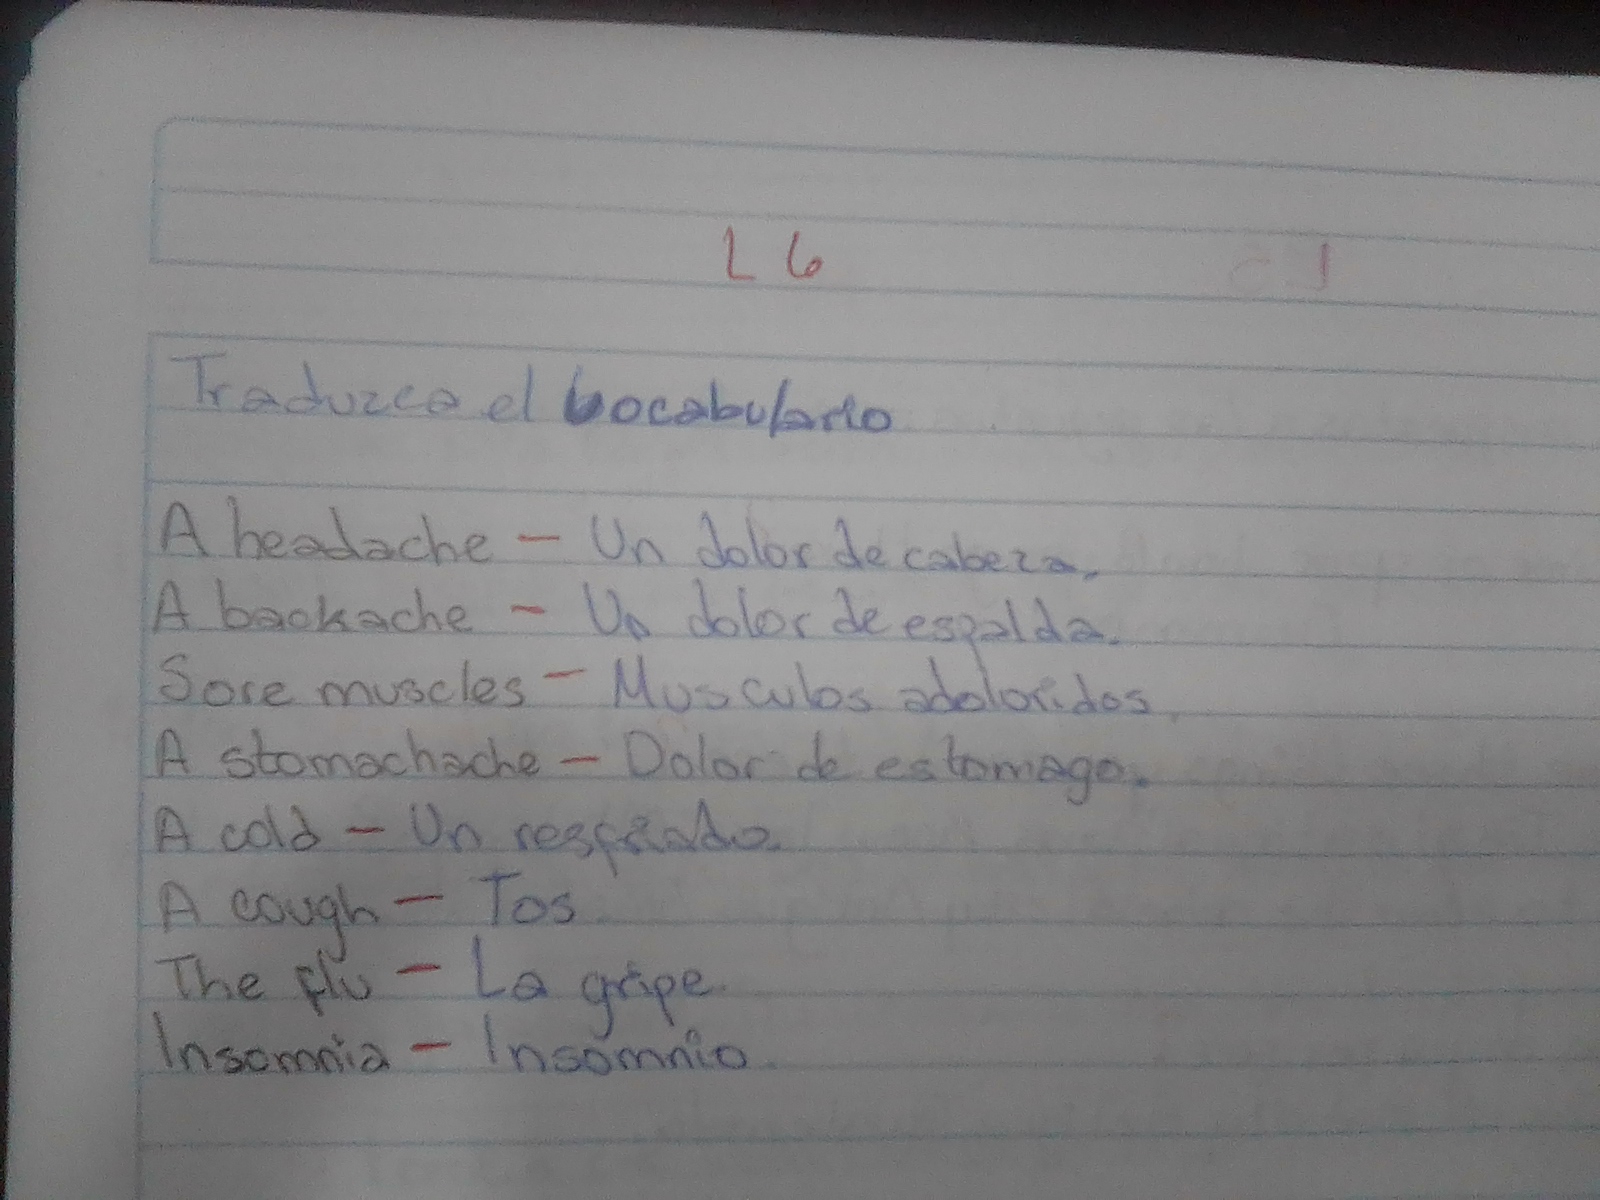 L 6
Traduzca el bocabulario
A headache - Un dolor de cabeza.
A backache - Un dolor de espalda.
Sore muscles - Musculos adoloridos.
A stomachache - Dolor de estomago.
A cold - Un resfriado.
A cough - Tos
The flu - La gripe.
Insomnia - Insomnio.